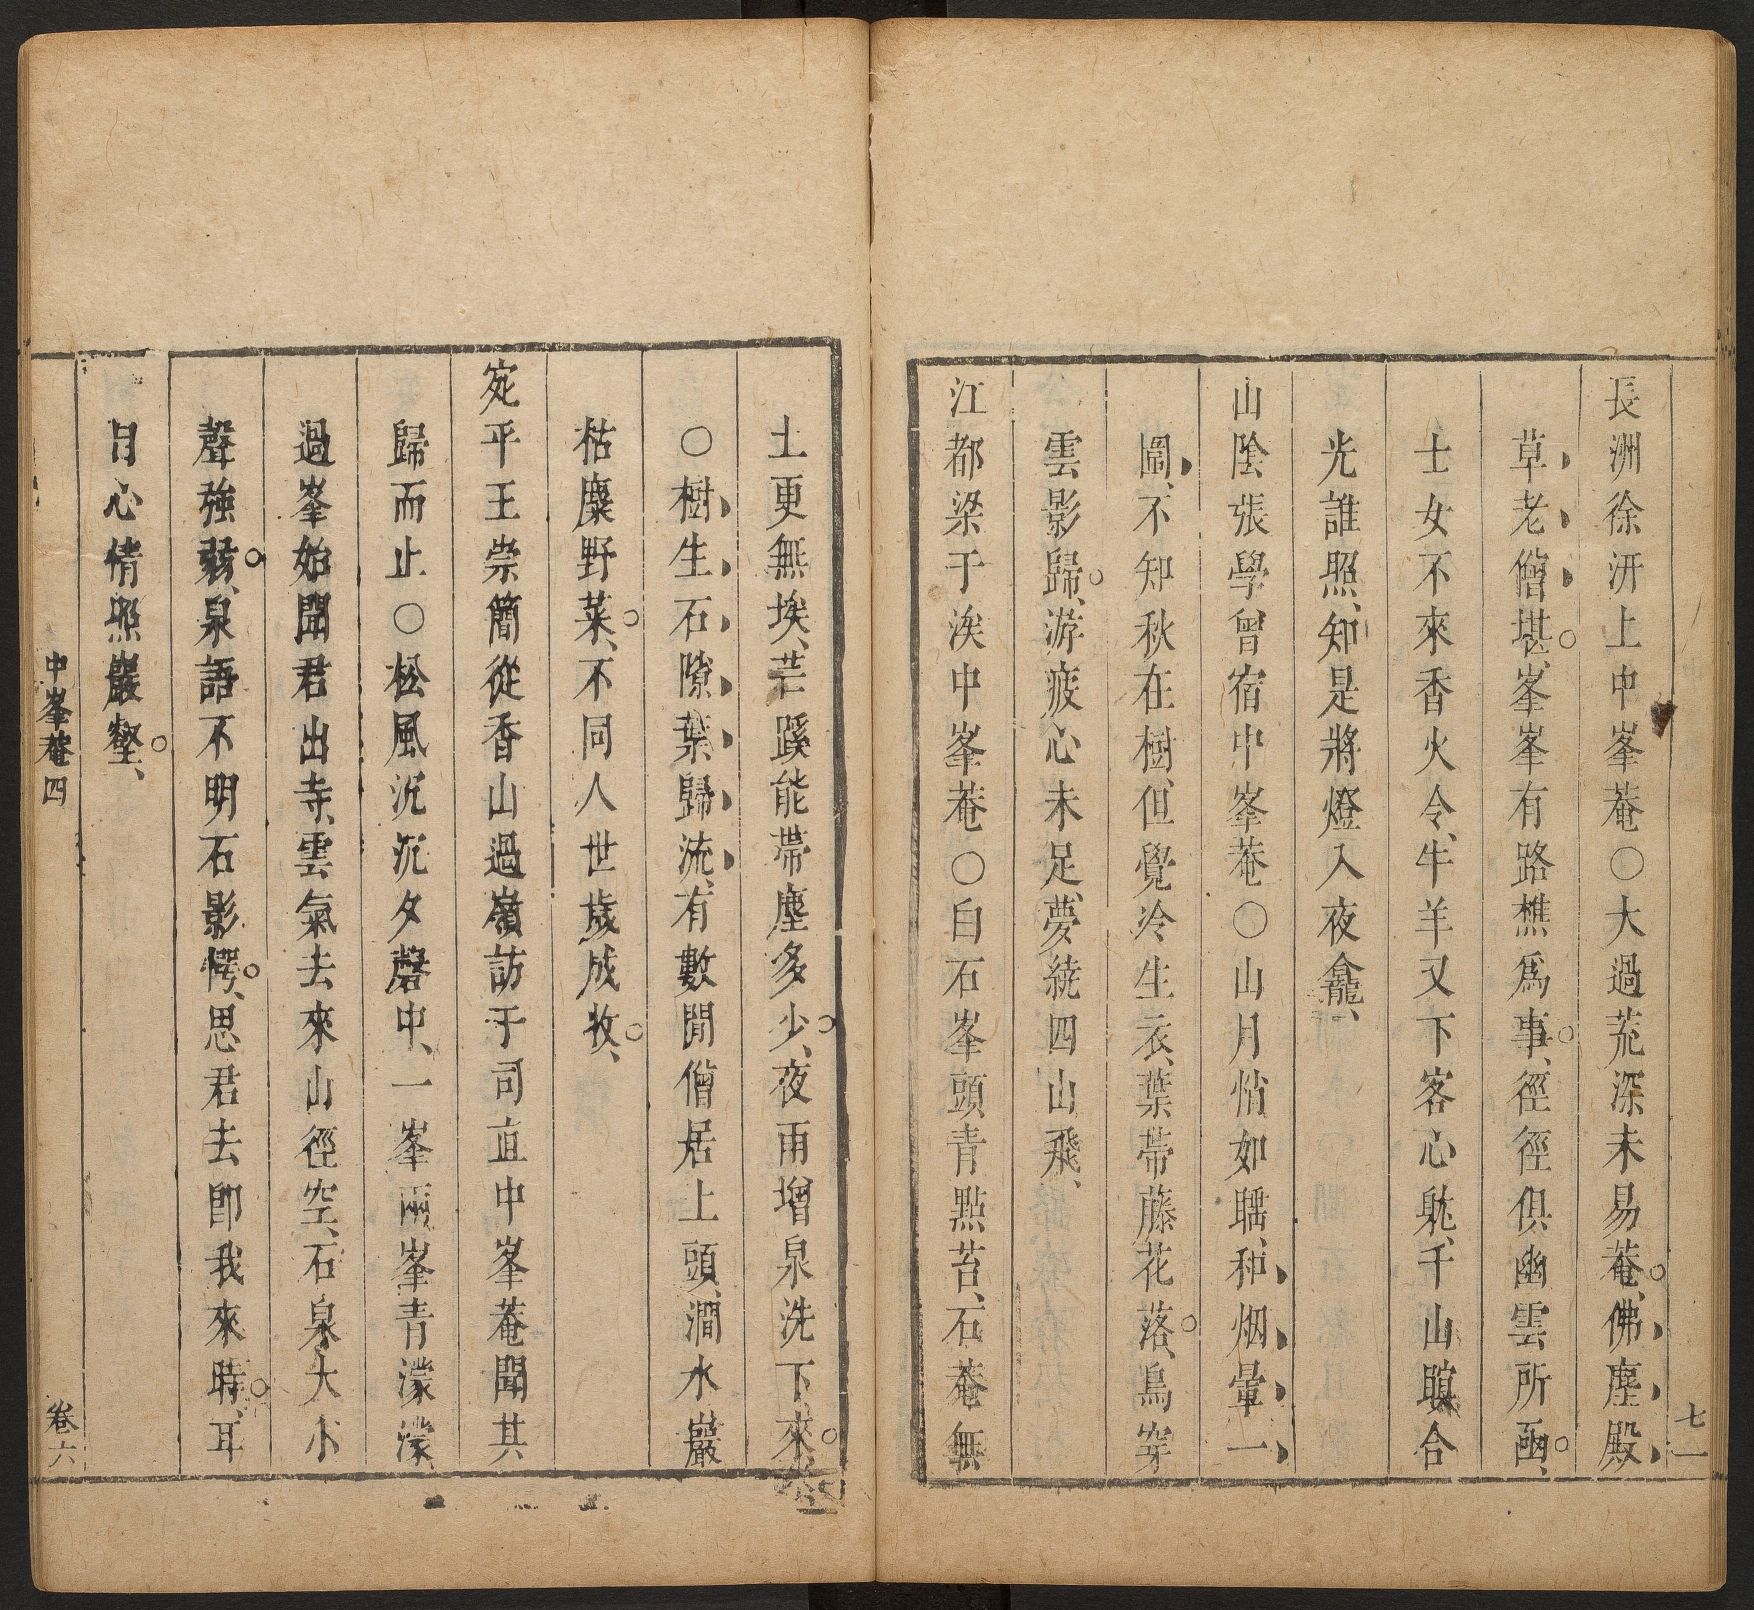 七一
長洲徐汧上中峯菴○大過荒深未易菴佛塵殿
草老僧堪峯峯有路樵爲事徑徑俱幽雲所函
士女不來香火令牛羊又下客心躭千山瞑合
光誰照知是將燈入夜龕
山陰張學曾宿中峯菴○山月悄如聽和烟暈一
圖不知秋在樹但覺冷生衣葉帶藤花落鳥穿
雲影歸游疲心未足夢繞四山飛
江都梁于涘中峯菴○白石峯頭青點苔石菴無
土更無埃芒蹊能帶塵多少夜雨增泉洗下來
○樹生石隙葉歸流有數閒僧居上頭澗水巖
枯麋野菜不同人世歲成收
宛平王崇簡從香山過嶺訪于司直中峯菴聞其
歸而止○松風沉沉夕磬中一峯兩峯青濛濛
過峯始聞君出寺雲氣去來山徑空石泉大小
聲強弱泉語不明石影愕思君去卽我來時耳
目心情照巖壑
中峯菴四
卷六